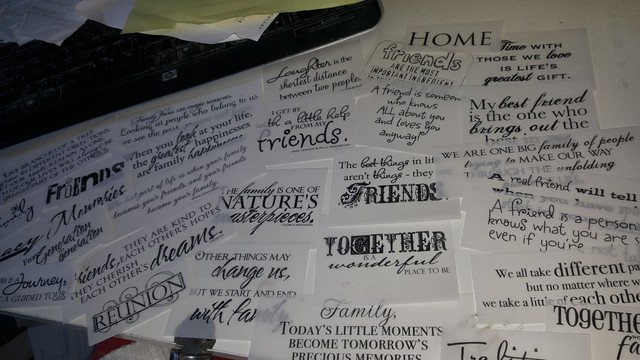 HOME
Laughter is the
shortest distance
between two people.
friends
ARE THE MOST
IMPORTANT INGREDIENT
Time WITH
THOSE WE love
IS LIFE'S
greatest GIFT.
Looking at people who belong to us,
we see the past
When you look at your life,
the greatest happinesses
are family happinesses
I GET BY
with a little help
FROM MY
friends.
A friend is someone
who knows
ALL about you
and loves you
anyway!
My best friend
is the one who
brings out the
WE ARE ONE BIG family of people
trying to MAKE OUR WAY
THROUGH the unfolding
FRiENDS
Memories
generation
generation
best part of life is when your family
become your friends, and your friends
become your family
THE family IS ONE OF
NATURE'S
masterpieces.
The best things in life
aren't things - they
FRIENDS
A real friend will tell
when you have
A friend is a person
knows what you are
even if you're not
Journey,
A GUIDED TOUR
Friends,
THEY ARE KIND TO
EACH OTHER'S HOPE
THEY CHERISH
EACH OTHER'S dreams.
REUNION
OTHER THINGS MAY
change us,
BUT WE START AND END
with family
TOGETHER
IS A
wonderful
PLACE TO BE.
We all take different
but no matter where
we take a little of each other
TOGETHER
Family,
TODAY'S LITTLE MOMENTS
BECOME TOMORROW'S
PRECIOUS MEMORIES
Traditi
fa